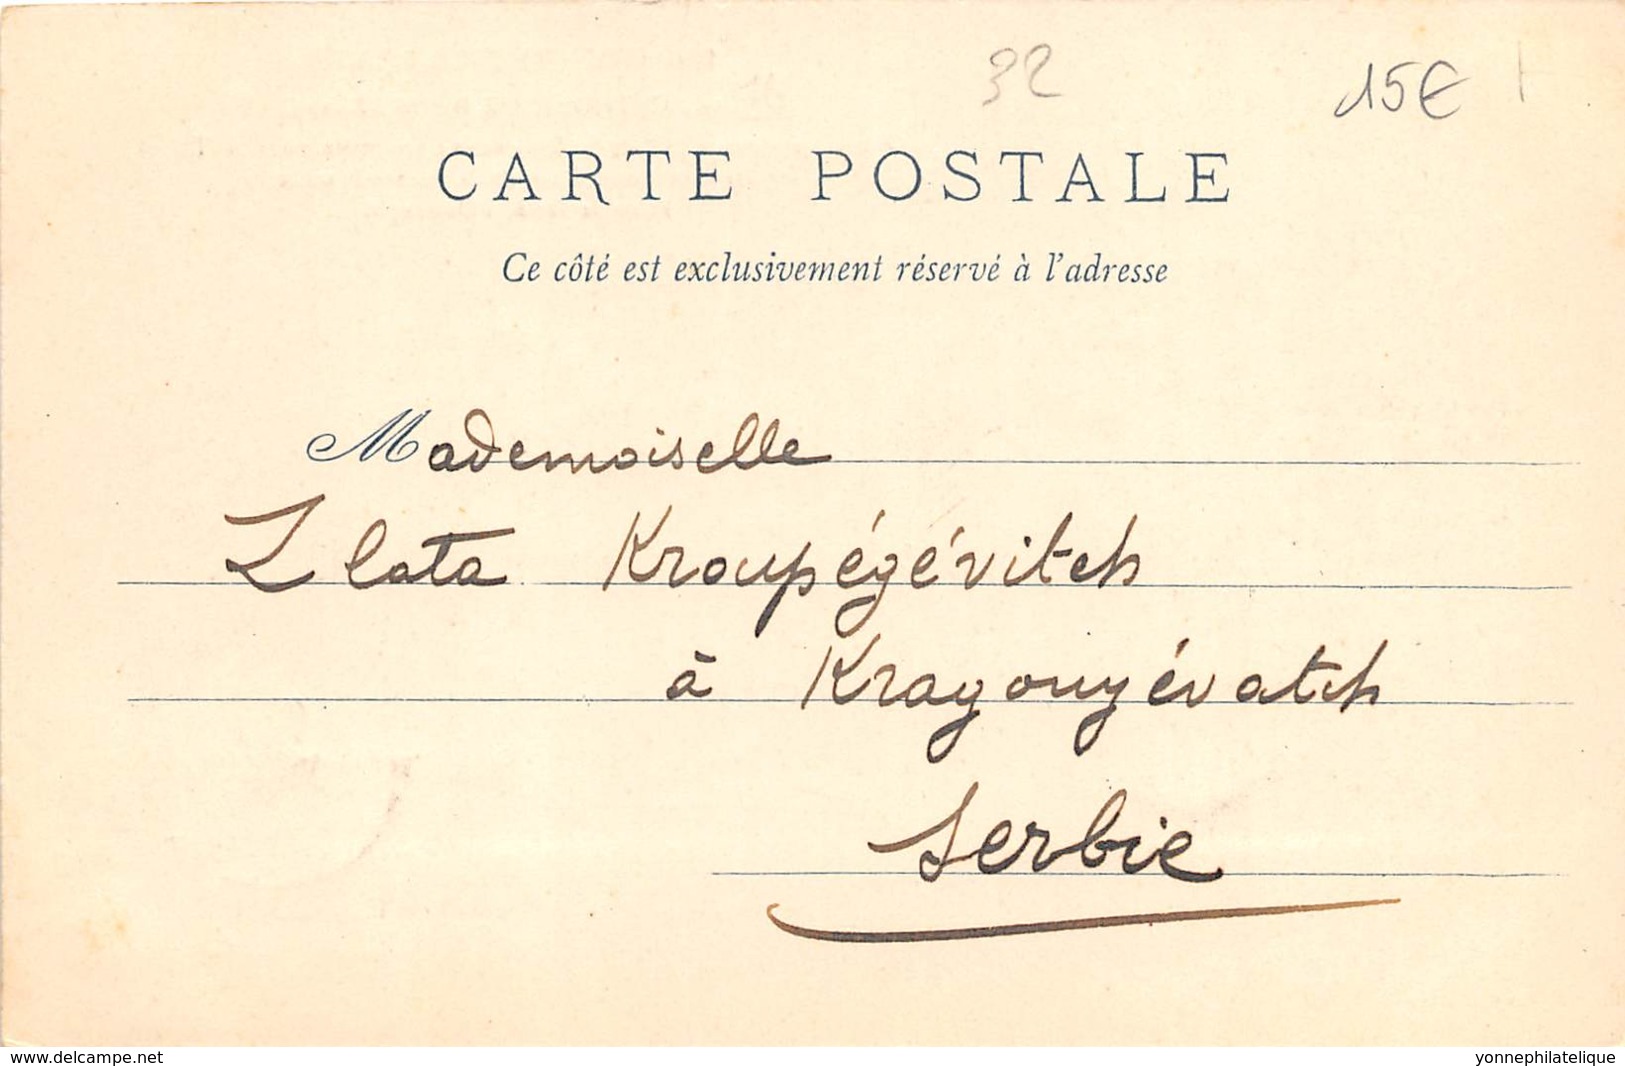 32
15€
CARTE POSTALE
Ce côté est exclusivement réservé à l'adresse
Mademoiselle
Zlata Kroupégévitch
à Kragouyévatch
Serbie
www.delcampe.net
yonnephilatelique